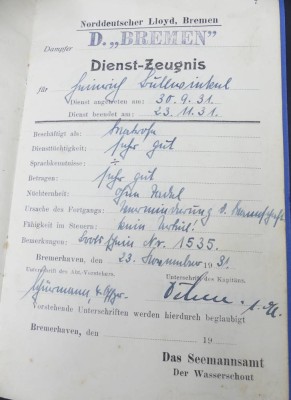 Norddeutscher Lloyd, Bremen
Dampfer D. „BREMEN"
Dienst-Zeugnis
für Heinrich
Dienst angetreten am: 30.9.31.
Dienst beendet am: 23.11.31.
Beschäftigt als: Matrose
Diensttüchtigkeit: sehr gut
Sprachkenntnisse: ÷
Betragen: sehr gut
Nüchternheit: ohne Tadel
Ursache des Fortgangs: Verminderung d. Mannschaft
Fähigkeit im Steuern: kein Urteil.
Bemerkungen: Bootsschein Nr. 1535.
Bremerhaven, den 23. November 1931
Unterschrift des Abt.-Vorstehers. Unterschrift des Kapitäns.
Vorstehende Unterschriften werden hierdurch beglaubigt
Bremerhaven, den 19
Das Seemannsamt
Der Wasserschout